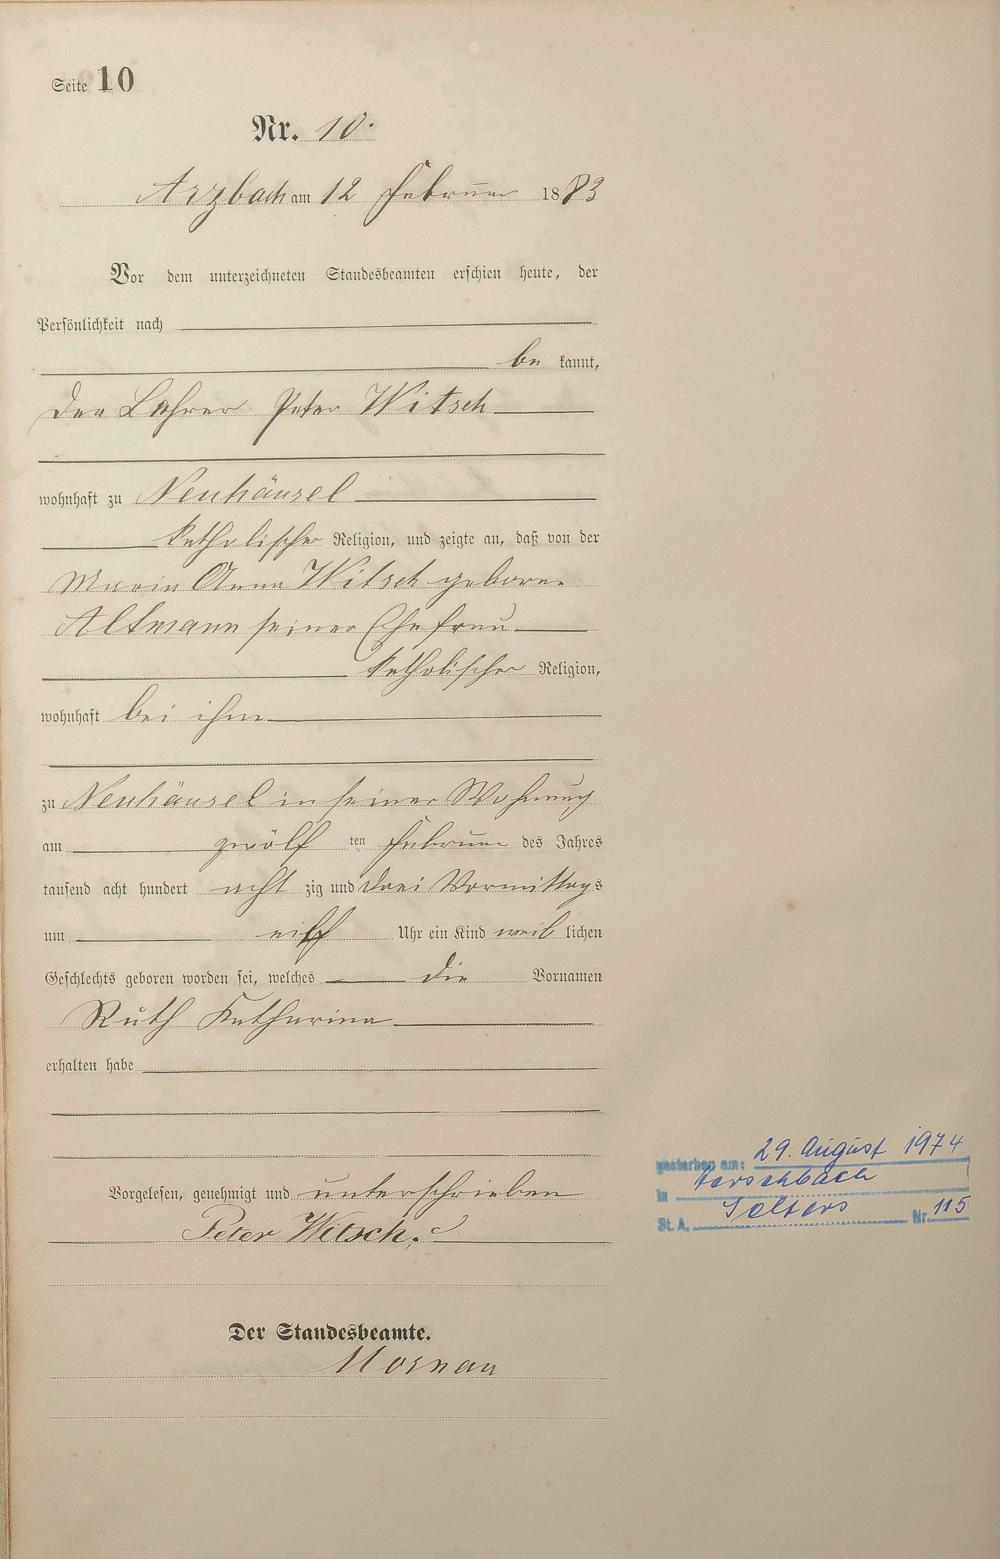 Seite 10
Nr. 10.
Arzbach am 12 Februar 1883
Vor dem unterzeichneten Standesbeamten erschien heute, der
Persönlichkeit nach
be kannt,
der Lehrer Peter Witsch
wohnhaft zu Neuhäusel
katholischer Religion, und zeigte an, daß von der
Maria Anna Witsch geborne
Altmann seiner Ehefrau
katholischer Religion,
wohnhaft bei ihm
zu Neuhäusel in seiner Wohnung
am zwölf ten Februar des Jahres
tausend acht hundert acht zig und drei Vormittags
um eilf Uhr ein Kind weib lichen
Geschlechts geboren worden sei, welches die Vornamen
Ruth Katharina
erhalten habe
Vorgelesen, genehmigt und unterschrieben
Peter Witsch.
Der Standesbeamte.
gestorben am: 29. August 1974
in
St. A. Selters Nr. 115